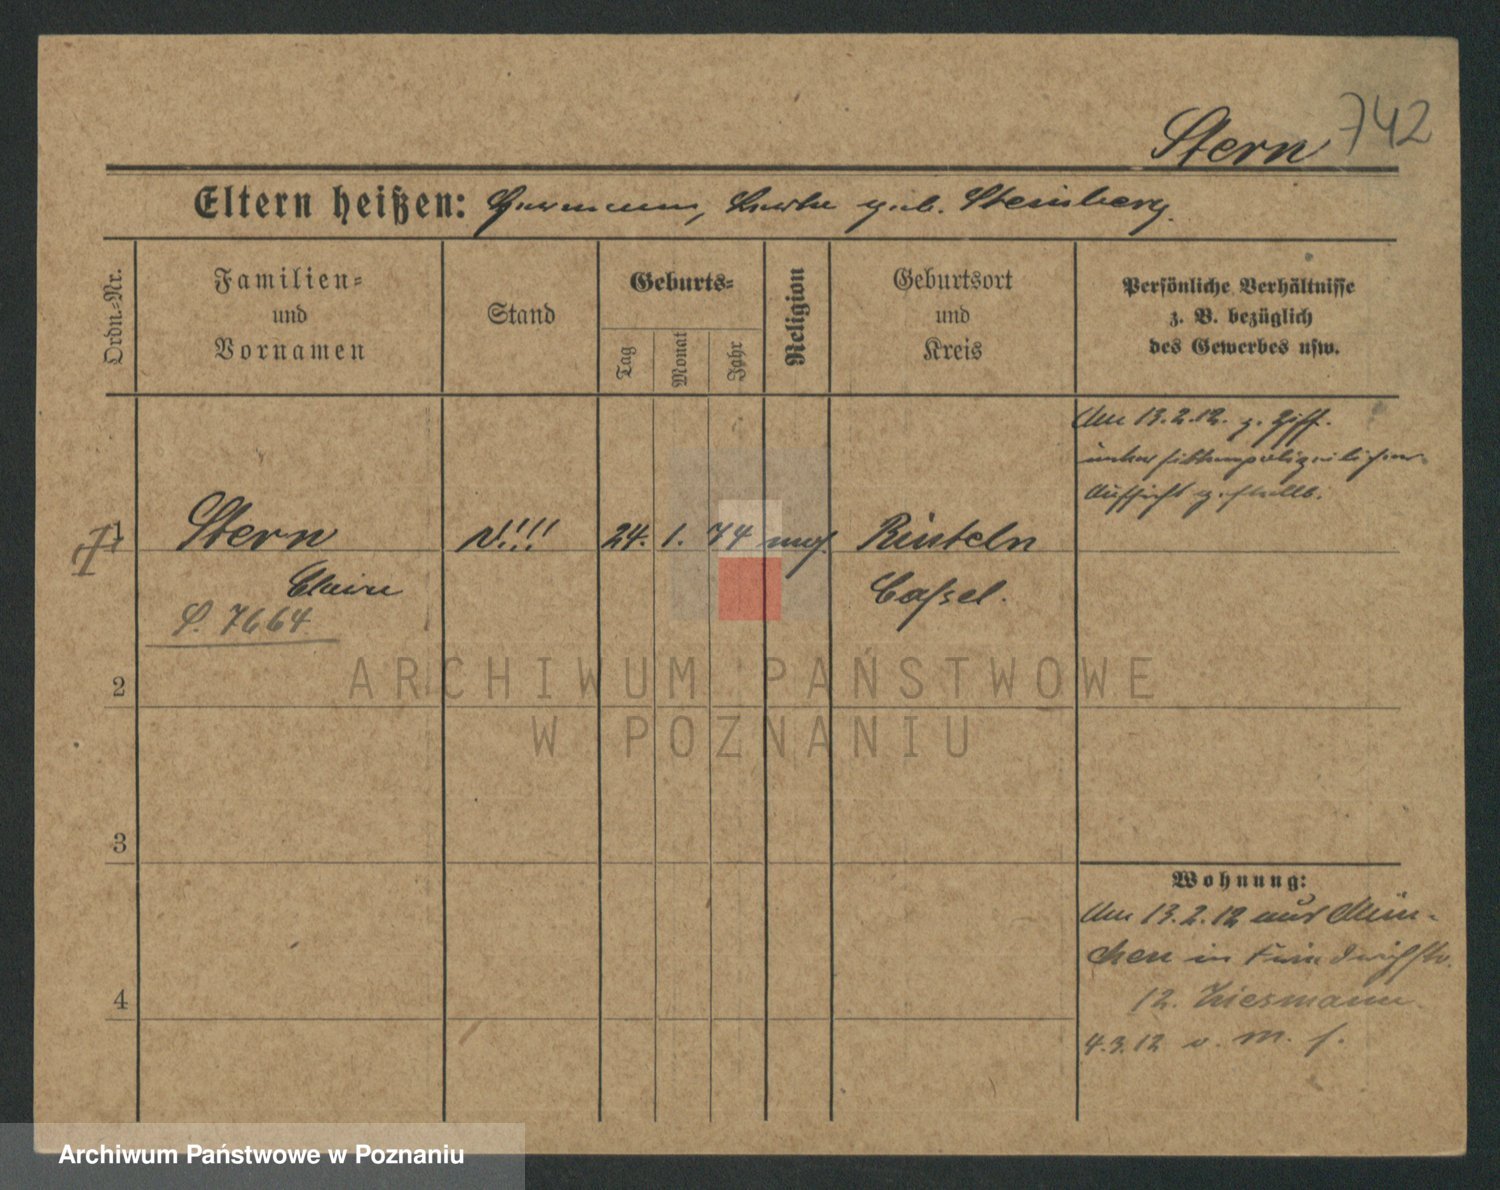 742
Stern
Eltern heißen: Hermann, geb. Steinberg.
Ordn.-Nr.
Familien-
und
Vornamen
Stand
Geburts-
Tag
Monat
Jahr
Religion
Geburtsort
und
Kreis
Persönliche Verhältnisse
z. B. bezüglich
des Gewerbes usw.
Am 13.2.12. z. Ziff.
unter sittenpolizeilicher
Aufsicht gestellt.
1
Stern
N!!!!
24. 1. 74
mos.
Rinteln
Claire
Cassel.
P. 7664
2
3
4
Wohnung:
Am 13.2.12 aus Mün-
chen in Friedrichstr.
12.
4.3.12 v. M. f.
ARCHIWUM PAŃSTWOWE
W POZNANIU
Archiwum Państwowe w Poznaniu